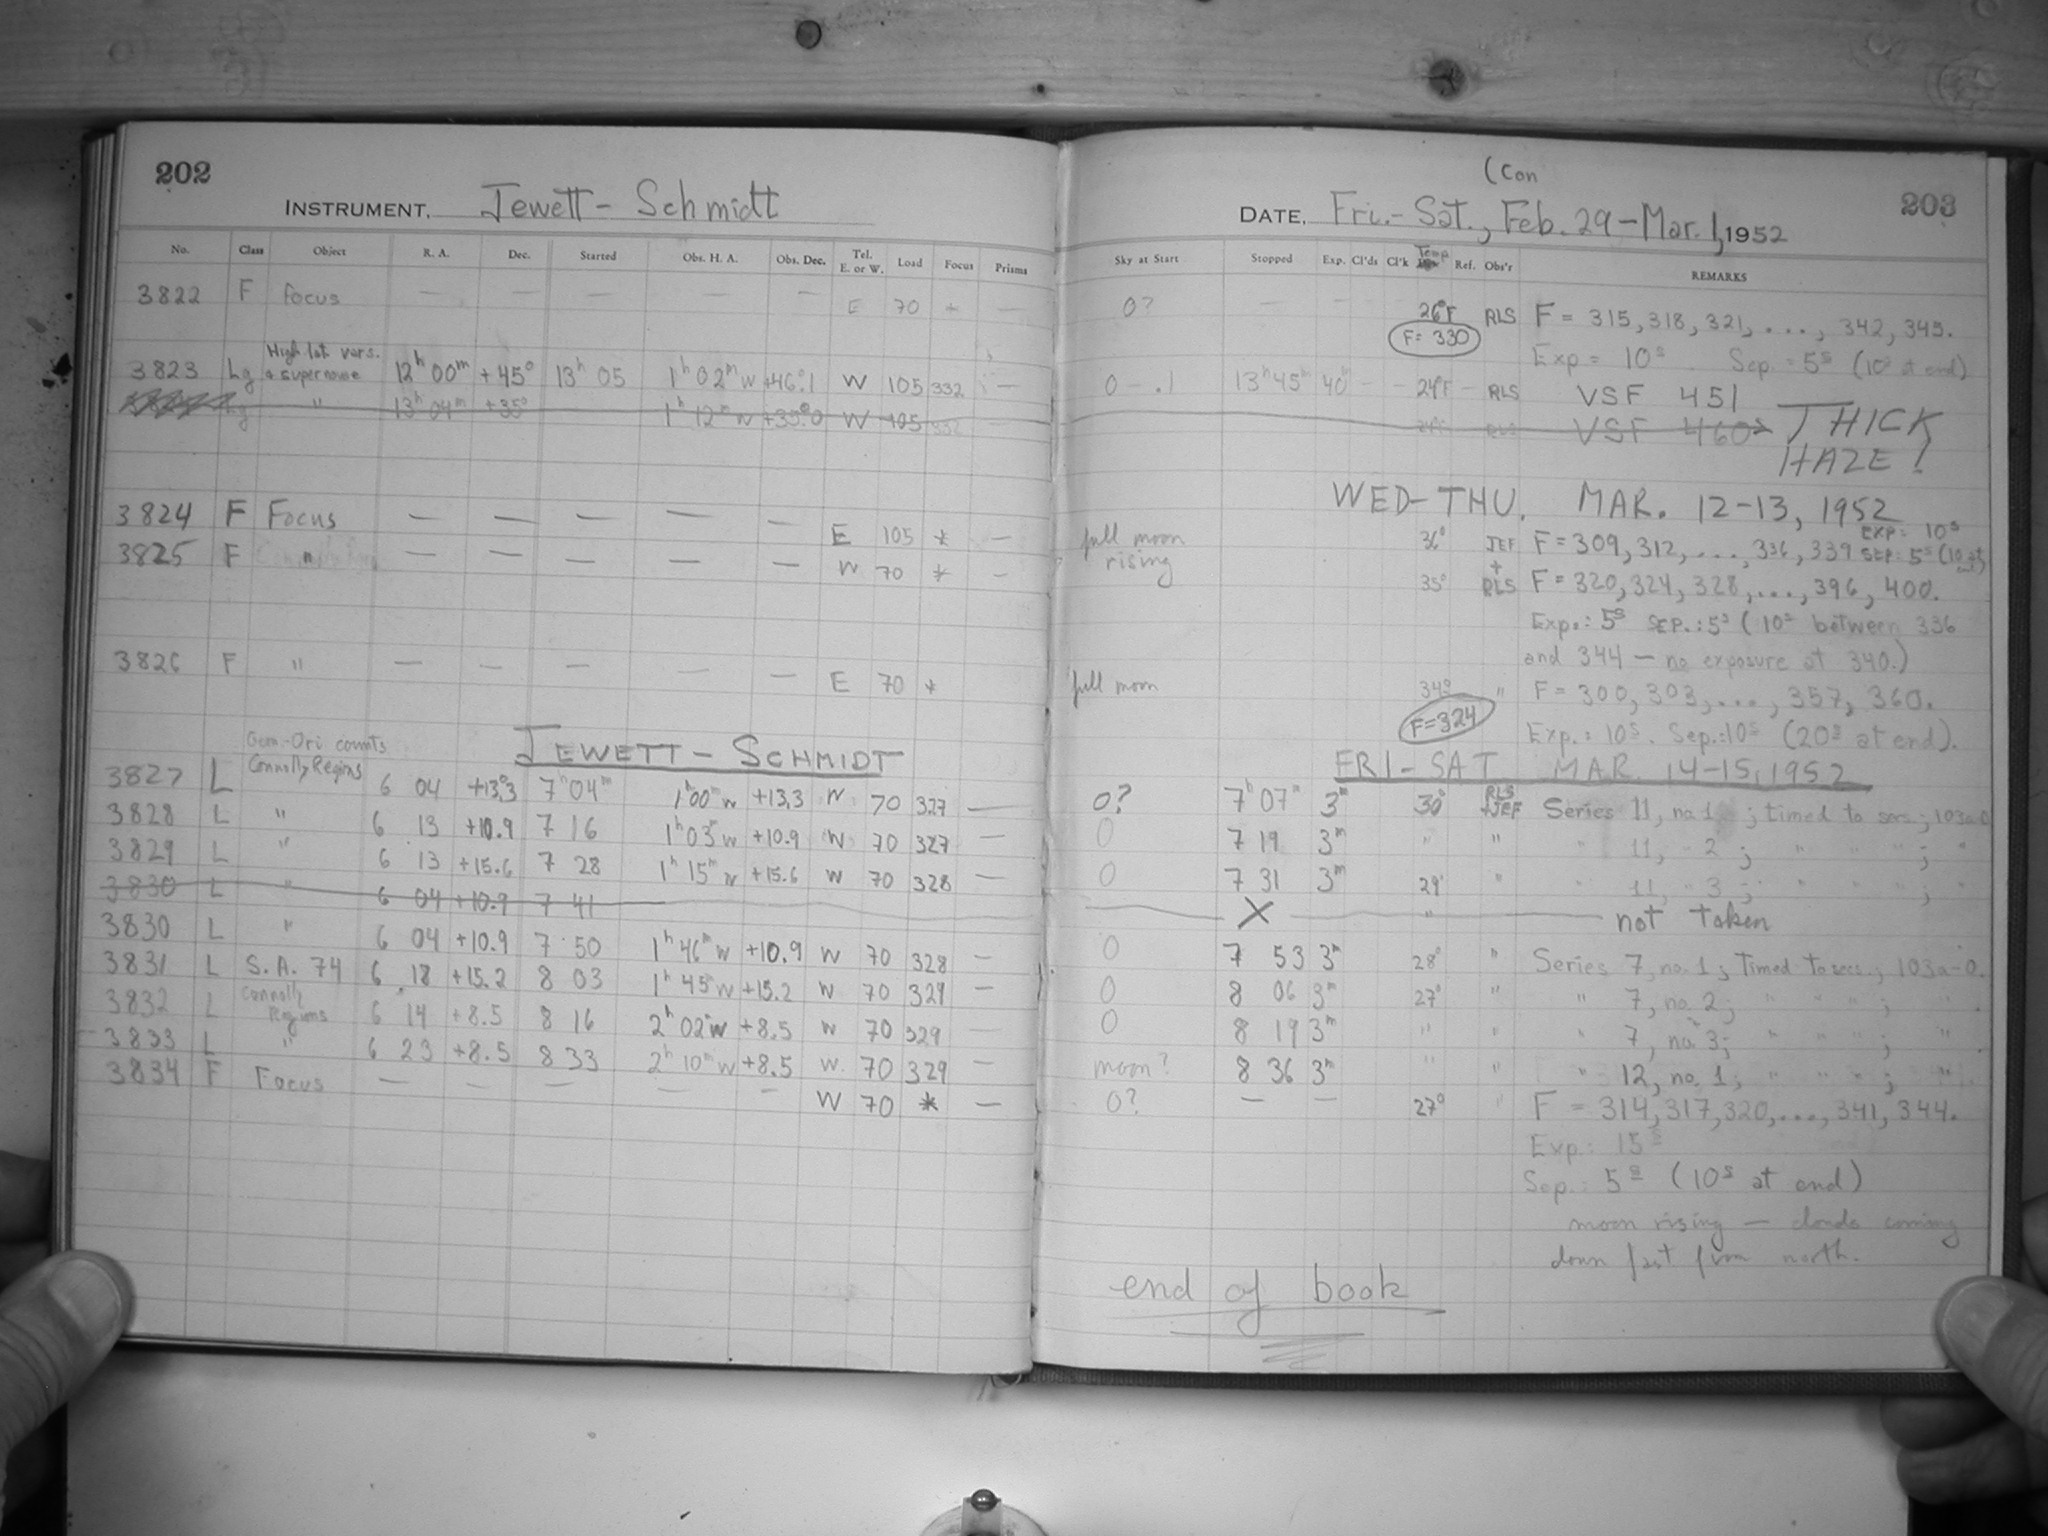 202
INSTRUMENT, Jewett-Schmidt
No. Class Object R. A. Dec. Started Obs. H. A. Obs. Dec. Tel. E. or W. Load Focus Prisms
3822 F Focus — — — — — E 70 * —
3823 Lg High lat. vars. & supernovae 12h 00m +45° 13h 05 1h 02m W +46°.1 W 105 332 —
Lg " 13h 04m +35° 1h 12m W +35°.0 W 105 332
3824 F Focus — — — — — E 105 * —
3825 F " — — — — — W 70 * —
3826 F " — — — — — E 70 *
JEWETT-SCHMIDT
3827 L Gem-Ori counts Connolly Regions 6 04 +13°.3 7h 04m 1h 00m W +13.3 W 70 327 —
3828 L " 6 13 +10.9 7 16 1h 03m W +10.9 W 70 327 —
3829 L " 6 13 +15.6 7 28 1h 15m W +15.6 W 70 328 —
3830 L " 6 04 +10.9 7 41
3830 L " 6 04 +10.9 7 50 1h 46m W +10.9 W 70 328 —
3831 L S.A. 74 6 18 +15.2 8 03 1h 45m W +15.2 W 70 329 —
3832 L Connolly Regions 6 14 +8.5 8 16 2h 02m W +8.5 W 70 329 —
3833 L " 6 23 +8.5 8 33 2h 10m W +8.5 W. 70 329 —
3834 F Focus — — — — — W 70 * —
(Con
203
DATE, Fri.-Sat., Feb. 29-Mar. 1, 1952
Sky at Start Stopped Exp. Cl'ds Cl'k Temp Ref. Obs'r REMARKS
0? — — 26°F RLS F = 315, 318, 321, ..., 342, 345.
F = 330 Exp = 10s. Sep. = 5s (10s at end)
0 - .1 13h 45m 40m - - 24°F - RLS VSF 451
VSF 460 THICK
HAZE!
WED-THU. MAR. 12-13, 1952
full moon rising 36° JEF + RLS F = 309, 312, ..., 336, 339 EXP: 10s SEP: 5s (10 at end)
35° F = 320, 324, 328, ..., 396, 400.
Exp.: 5s SEP.: 5s (10s between 336
and 344 — no exposure at 340.)
full moon 34° " F = 300, 303, ..., 357, 360.
F=324 Exp.: 10s. Sep.: 10s (20s at end).
FRI-SAT MAR. 14-15, 1952
0? 7h 07m 3m 30° RLS +JEF Series 11, no. 1 ; timed to secs.; 103a-0
0 7 19 3m " " " 11, " 2 ; " " " ; "
0 7 31 3m 29° " " 11, " 3 ; " " " ; "
X " not taken
0 7 53 3m 28° " Series 7, no. 1 ; Timed to secs.; 103a-0.
0 8 06 3m 27° " " 7, no. 2; " " " ; "
0 8 19 3m " " " 7, no. 3; " " " ; "
moon? 8 36 3m " " " 12, no. 1; " " " ; "
0? — — 27° " F = 314, 317, 320, ..., 341, 344.
Exp.: 15s
Sep.: 5s (10s at end)
moon rising — clouds coming
down fast from north.
end of book